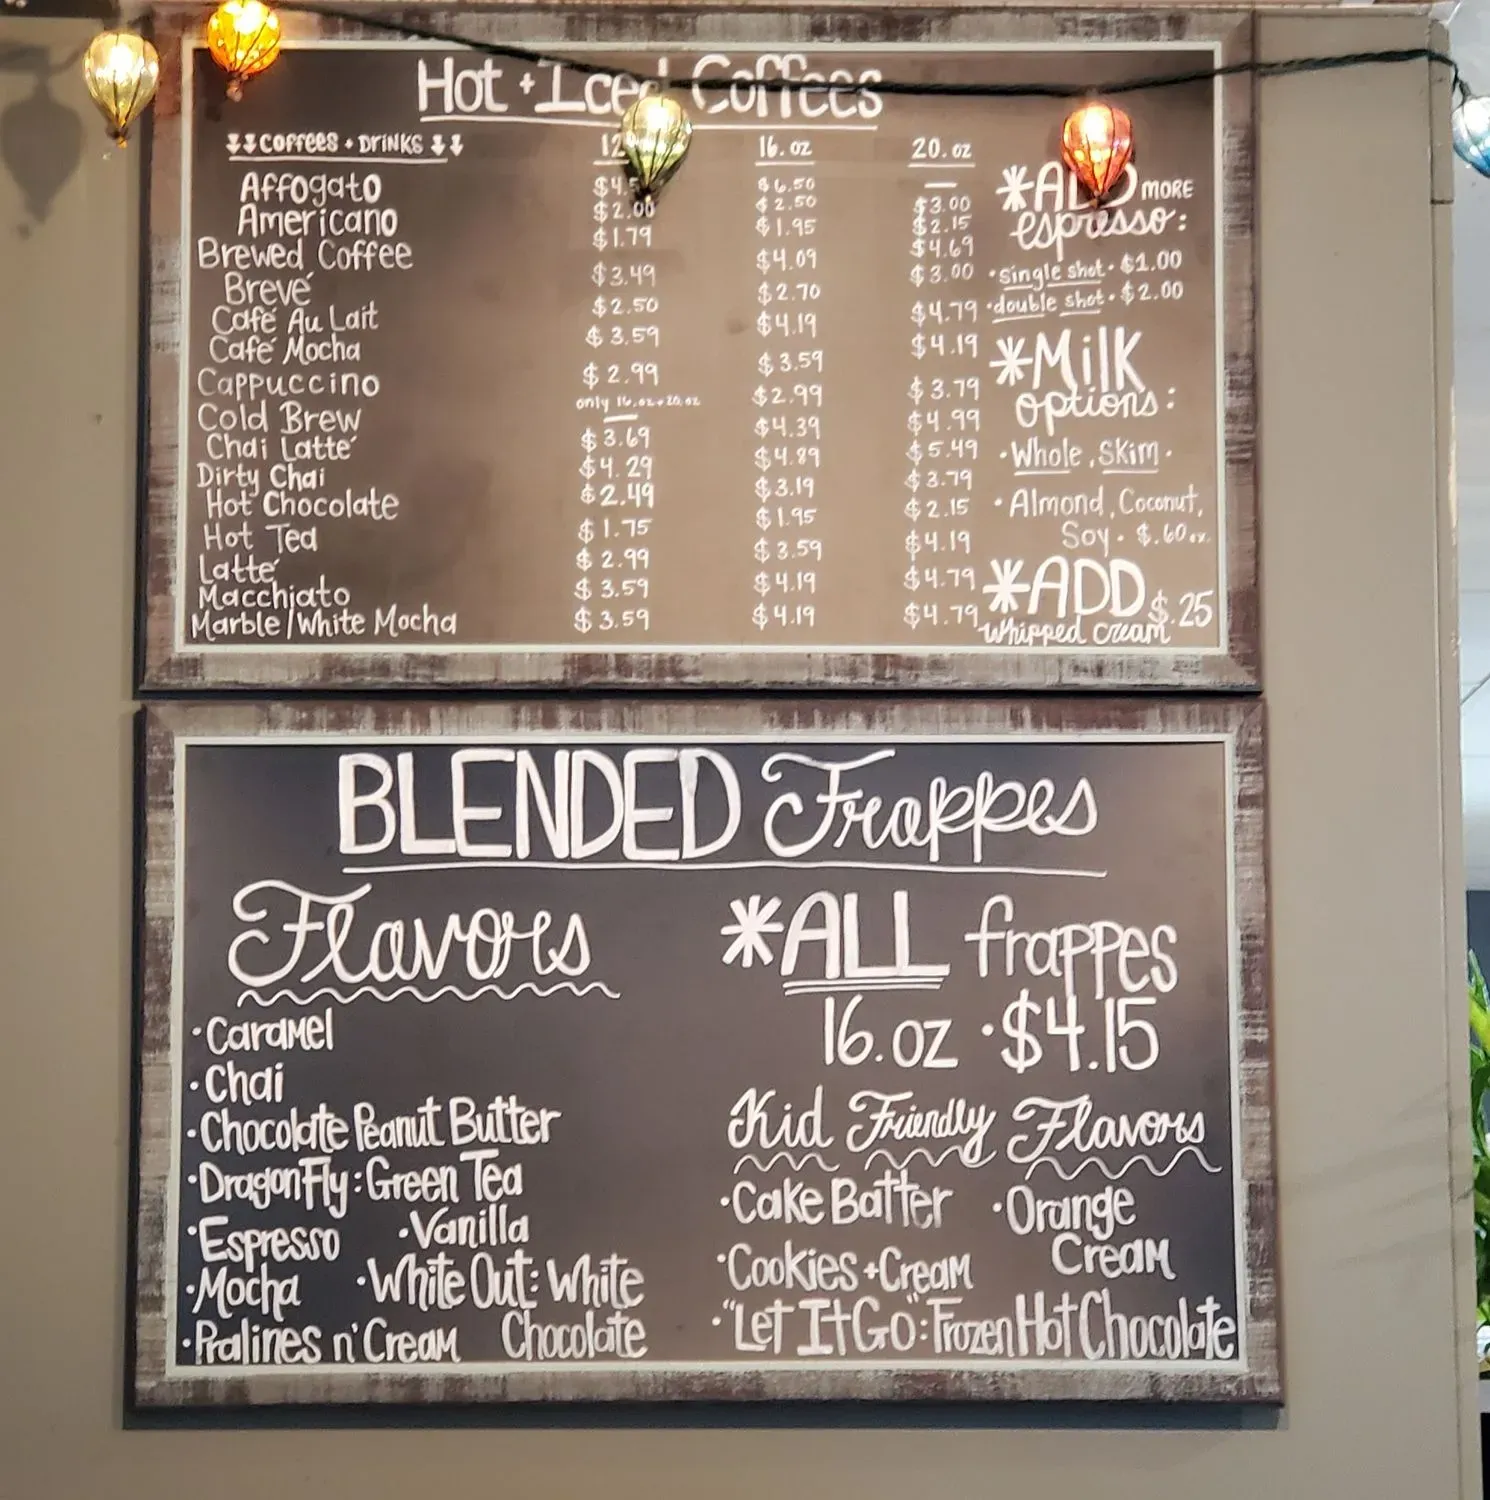 Hot + Iced Coffees
↓↓ Coffees + Drinks ↓↓ 12 16. oz 20. oz
Affogato $4.5 $6.50 —
Americano $2.00 $2.50 $3.00
Brewed Coffee $1.79 $1.95 $2.15
Brevé $3.49 $4.09 $4.69
Café Au Lait $2.50 $2.70 $3.00
Café Mocha $3.59 $4.19 $4.79
Cappuccino $2.99 $3.59 $4.19
Cold Brew only 16.oz+20.oz — $2.99 $3.79
Chai Latté $3.69 $4.39 $4.99
Dirty Chai $4.29 $4.89 $5.49
Hot Chocolate $2.49 $3.19 $3.79
Hot Tea $1.75 $1.95 $2.15
Latté $2.99 $3.59 $4.19
Macchiato $3.59 $4.19 $4.79
Marble/White Mocha $3.59 $4.19 $4.79
*ADD MORE
espresso:
• single shot • $1.00
• double shot • $2.00
*Milk
options:
• Whole, Skim •
• Almond, Coconut,
Soy • $.60
*ADD $.25
Whipped cream
BLENDED Frappes
Flavors
• Caramel
• Chai
• Chocolate Peanut Butter
• DragonFly: Green Tea
• Espresso • Vanilla
• Mocha • White Out: White
• Pralines n' Cream Chocolate
*ALL frappes
16. oz • $4.15
Kid Friendly Flavors
• Cake Batter • Orange
Cream
• Cookies + Cream
• "Let It Go": Frozen Hot Chocolate